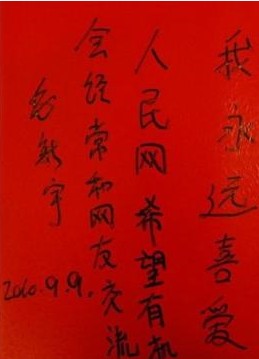 我永远喜爱
人民网希望有机
会经常和网友交流
2010.9.9.